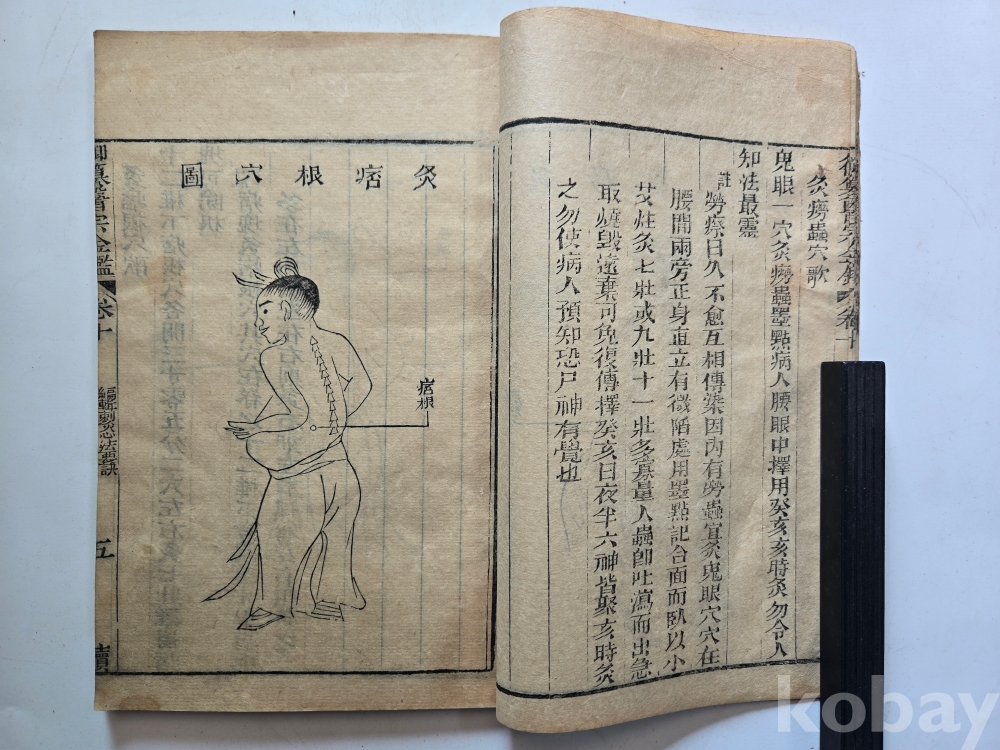 灸癆蟲穴歌
鬼眼一穴灸癆蟲墨點病人腰眼中擇用癸亥亥時灸勿令人
知法最靈
註勞瘵日久不愈互相傳染因內有勞蟲宜灸鬼眼穴穴在
腰間兩旁正身直立有微陷處用墨點記合面而臥以小
艾炷灸七壯或九壯十一壯多寡量人蟲卽吐瀉而出急
取燒毀遠棄可免復傳擇癸亥日夜半六神皆聚亥時灸
之勿使病人預知恐尸神有覺也
灸痞根穴圖
痞根
御纂醫宗金鑑
卷十
五
kobay